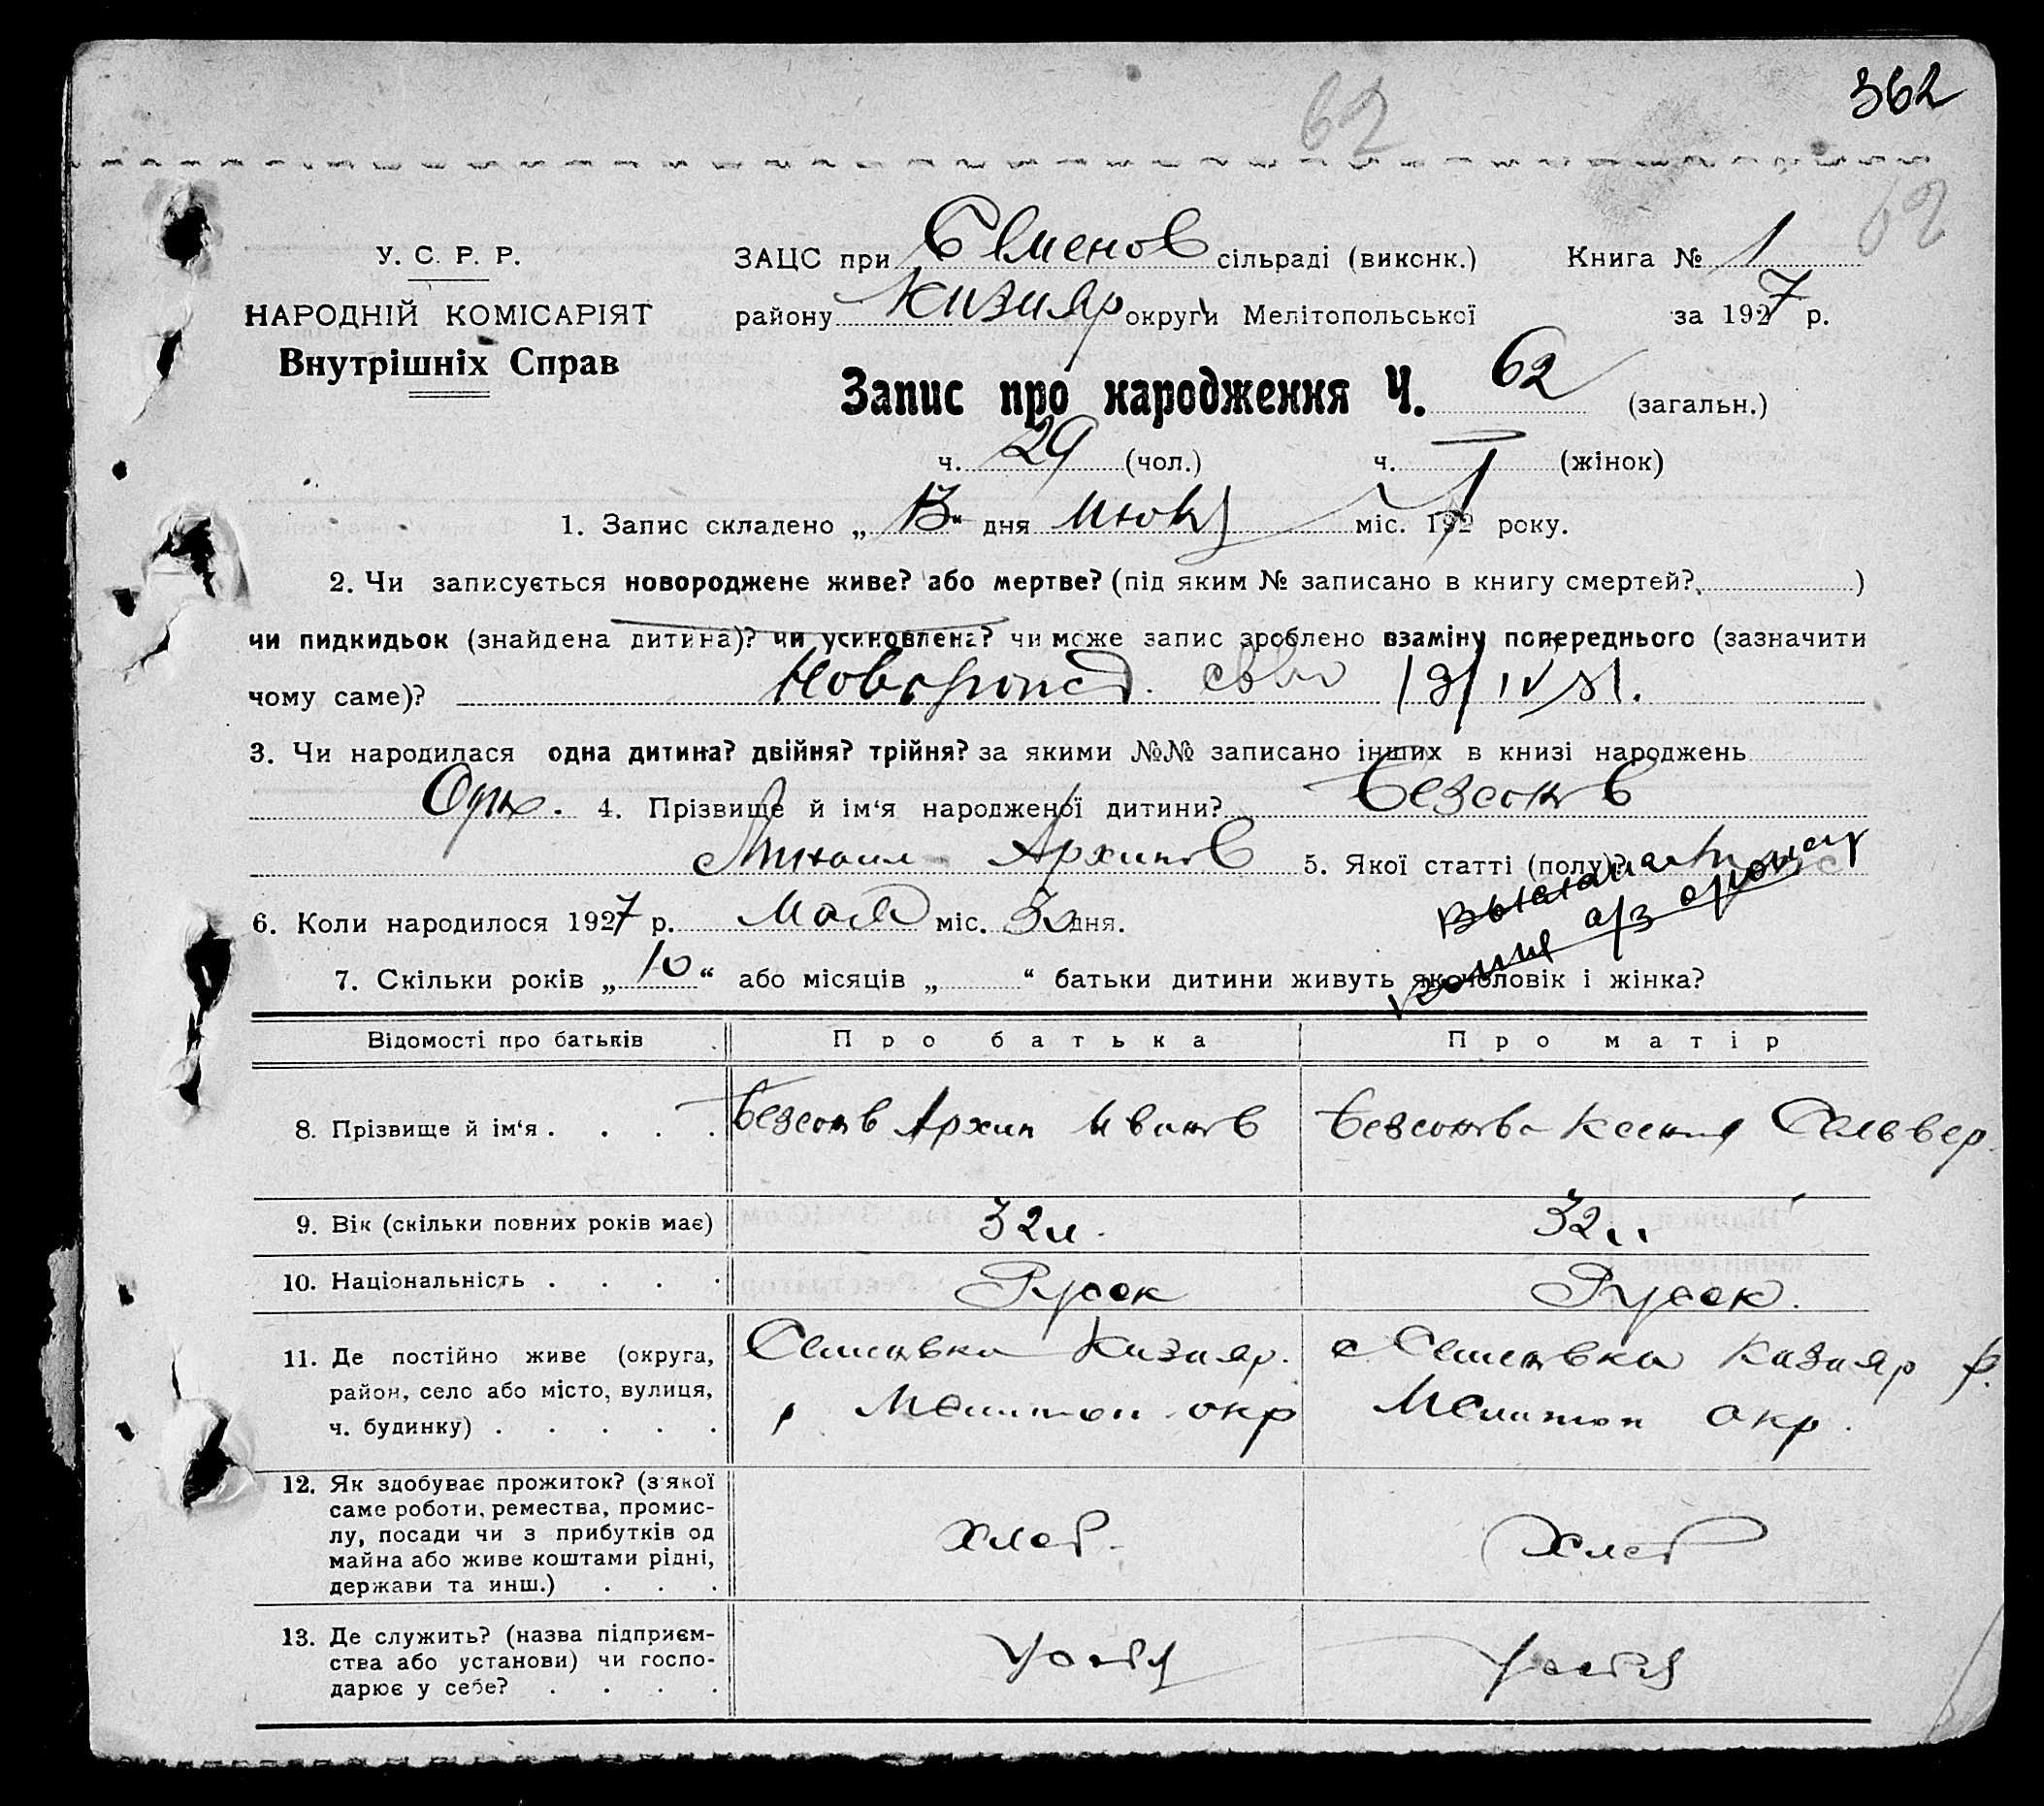 362
62
62
У. С. Р. Р.
НАРОДНІЙ КОМІСАРІЯТ
Внутрішніх Справ
ЗАЦС при Семенов сільраді (виконк.) Книга № 1
району Кизияр округи Мелітопольської за 1927 р.
Запис про народження Ч. 62 (загальн.)
ч. 29 (чол.) ч. (жінок)
1. Запис складено „ “ дня міс. 192 року.
2. Чи записується новороджене живе? або мертве? (під яким № записано в книгу смертей? )
чи пидкидьок (знайдена дитина)? чи усиновлена? чи може запис зроблено взаміну попереднього (зазначити
чому саме)?
3. Чи народилася одна дитина? двійня? трійня? за якими №№ записано інших в книзі народжень
Одна. 4. Прізвище й ім‘я народженої дитини? Безсонов
Михаил Архипов 5. Якої статті (полу)?
6. Коли народилося 1927 р. Мая міс. дня.
7. Скільки років „ 10 “ або місяців „ “ батьки дитини живуть як чоловік і жінка?
Відомості про батьків Про батька Про матір
8. Прізвище й ім‘я . . . . Безсонов Архип Иванов Безсонова Ксения Сельвер.
9. Вік (скільки повних років має) 32 л. 32 л.
10. Національність . . . . Русск Русск.
11. Де постійно живе (округа, район, село або місто, вулиця, ч. будинку) . . . . .
Семеновка Кизияр. с. Семеновка Кизияр р.
Мелитоп окр Мелитоп окр.
12. Як здобуває прожиток? (з якої
саме роботи, ремества, промис-
лу, посади чи з прибутків од
майна або живе коштами рідні,
держави та инш.) . . .
Хлеб. Хлеб
13. Де служить? (назва підприєм-
ства або установи) чи госпо-
дарює у себе? . . . .